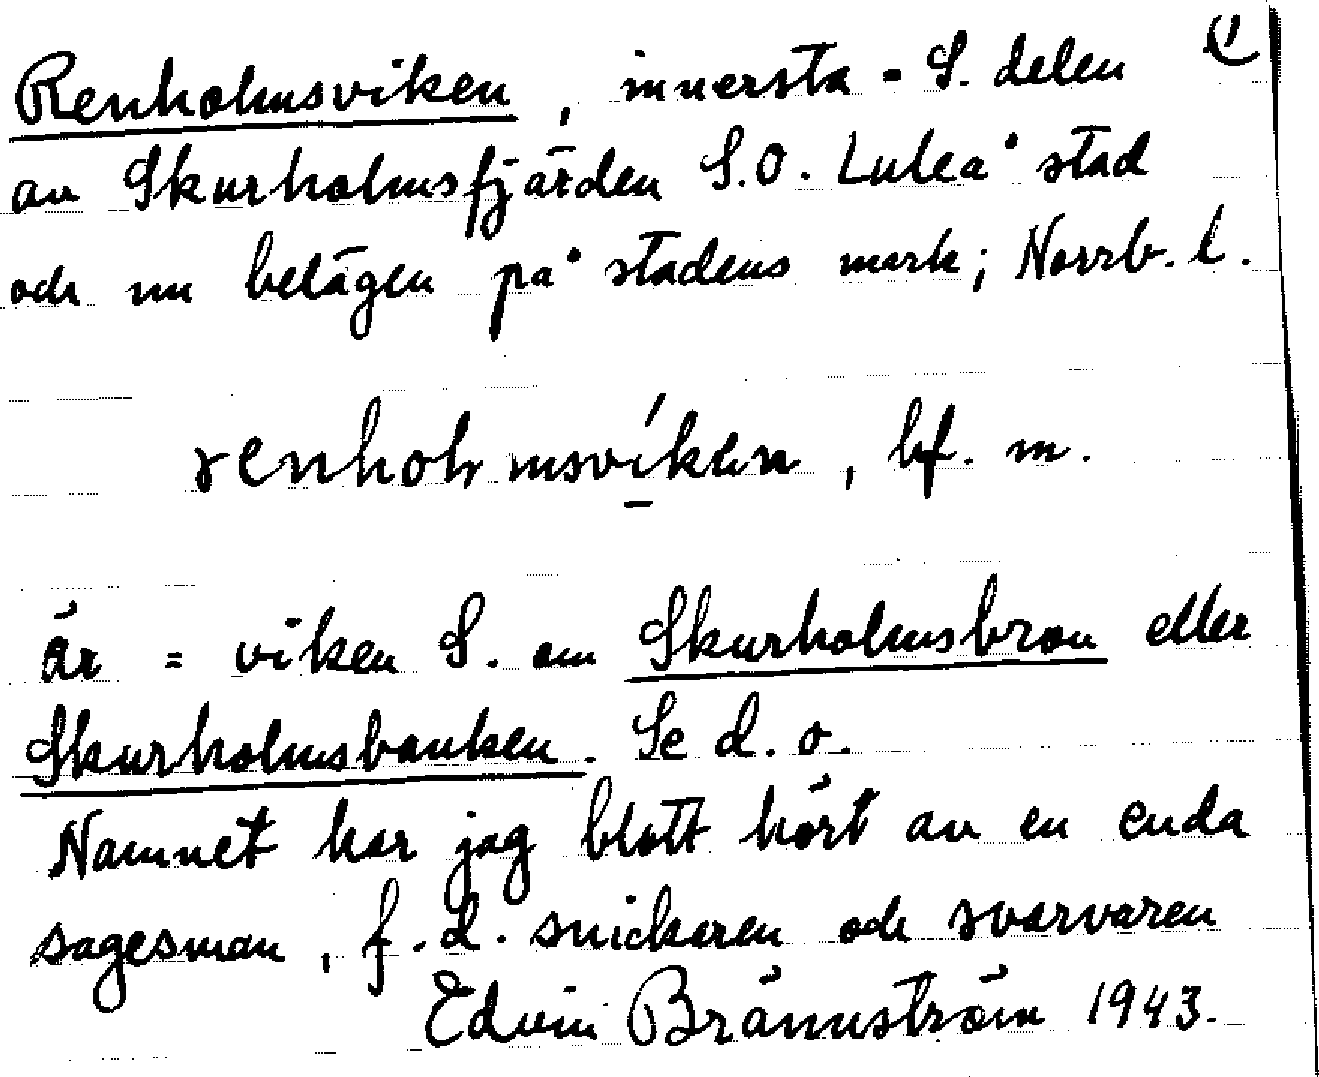 Renholmsviken, innersta - S. delen
av Skurholmsfjärden S.O. Luleå stad
och nu belägen på stadens mark; Norrb. l.
renholmsvíken, bf. m.
är = viken S. om Skurholmsbron eller
Skurholmsbanken. Se d. o.
Namnet har jag blott hört av en enda
sagesman, f.d. snickaren och svarvaren
Edvin Brännström 1943.